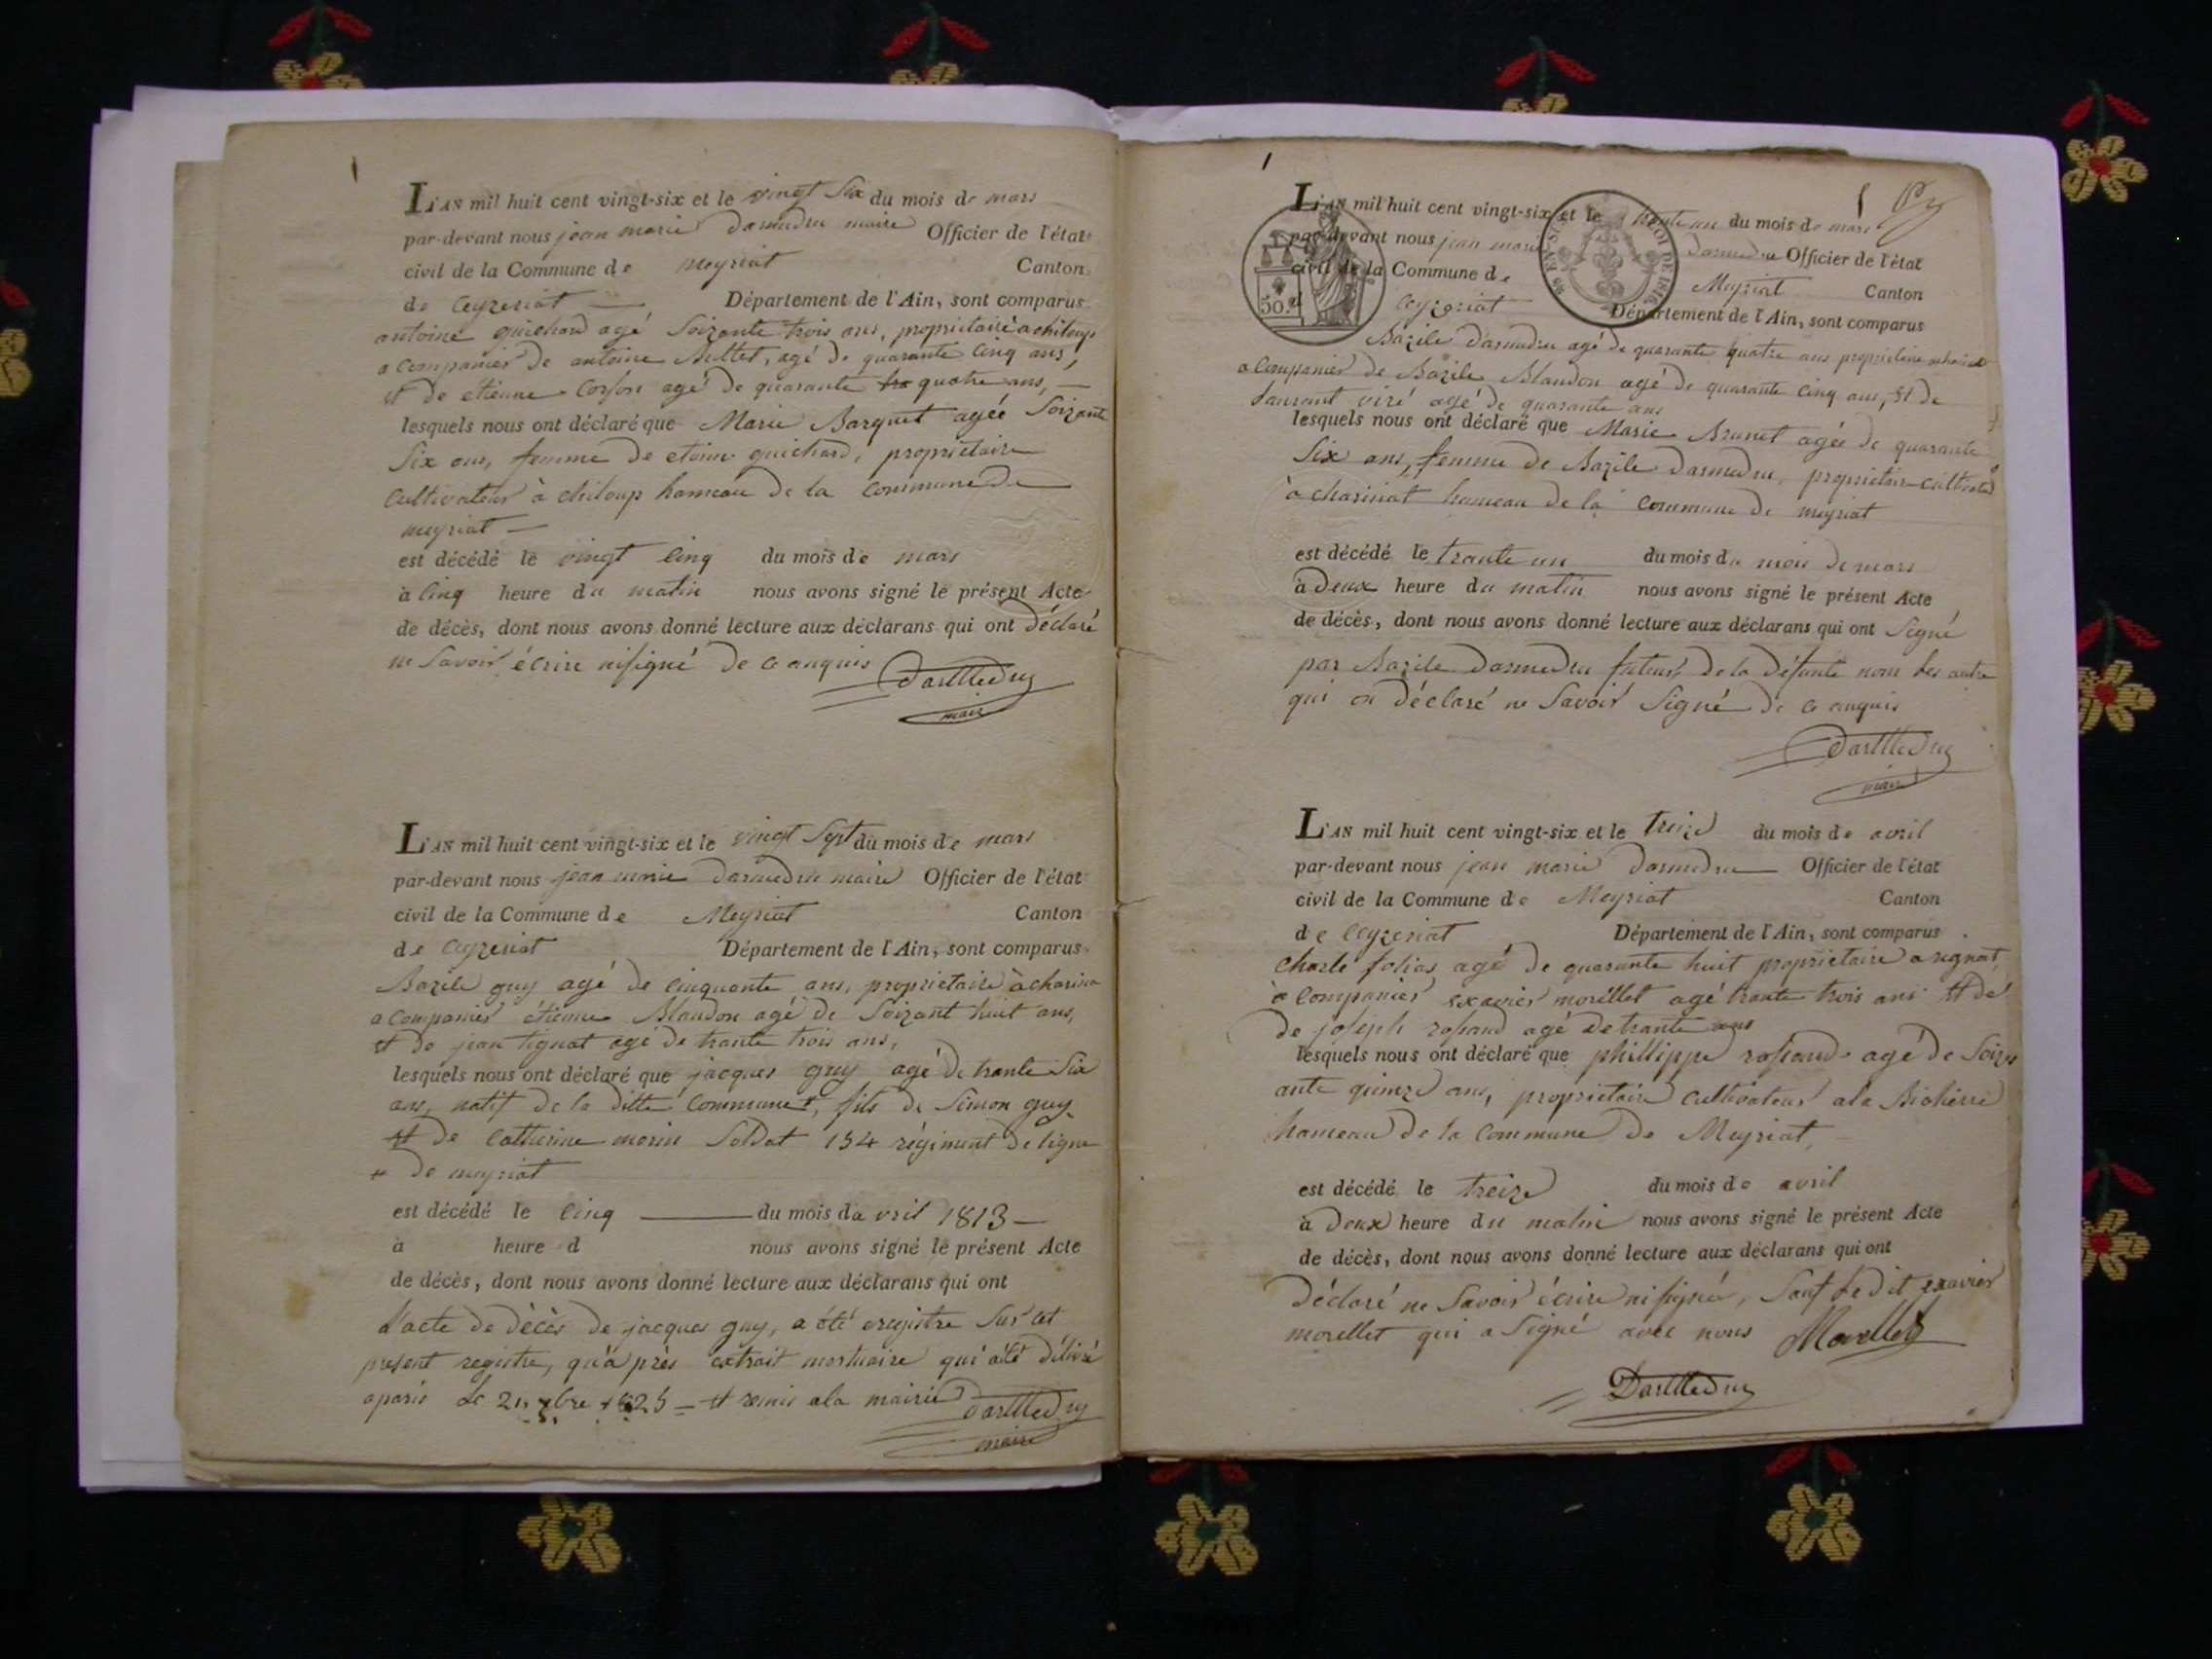 L'AN mil huit cent vingt-six et le vingt Six du mois de mars
par-devant nous jean marie darmedru maire Officier de l'état
civil de la Commune de meyriat Canton
de Ceyzeriat Département de l'Ain, sont comparus
antoine guichard agé Soizante trois ans, propriétaire a chiloup
a Companier de antoine Buttet, agé de quarante Cinq ans,
et de etienne Corson agé de quarante quatre ans,
lesquels nous ont déclaré que Marie Barquet agée Soizante
Six ans, femme de etoine guichard, propriétaire
Cultivateur à chiloup hameau de la Commune De
meyriat
est décédé le vingt Cinq du mois de mars
à Cinq heure du matin nous avons signé le présent Acte
de décès, dont nous avons donné lecture aux déclarans qui ont Déclaré
ne Savoir écrire ni signé de ce anquis Darmedru
maire
L'AN mil huit cent vingt-six et le vingt Sept du mois de mars
par-devant nous jean marie darmedru maire Officier de l'état
civil de la Commune de Meyriat Canton
de Ceyzeriat Département de l'Ain, sont comparus
Bazile guy agé de Cinquante ans, propriétaire à charina
a Companier étienne Blandon agé de Soizant huit ans,
et de jean tignat agé de trante trois ans,
lesquels nous ont déclaré que jacques guy agé de trante Six
ans, natif de la ditte Commune #, fils de Simon guy
et de Catherine morin Soldat 154 régiment de ligne
# de meyriat
est décédé le Cinq du mois d'avril 1813
à heure d nous avons signé le présent Acte
de décès, dont nous avons donné lecture aux déclarans qui ont
L'acte de décès de jacques guy, a été eregistre Sur cet
present registre, qu'a près extrait mortuaire qui a été délivré
a paris Le 21 xbre 1825 et remis a la mairie Darmedru
maire
L'AN mil huit cent vingt-six et le trente un du mois de mars
par-devant nous jean marie darmedru Officier de l'état
civil de la Commune de Meyriat Canton
Ceyzeriat Département de l'Ain, sont comparus
Bazile Darmedru agé de quarante quatre ans propriétaire
a Companier de Bazile Blandon agé de quarante Cinq ans, et de
Laurant viré agé de quarante ans
lesquels nous ont déclaré que Marie Brunet agée de quarante
Six ans, femme de Bazile Darmedru, propriétaire cultivateur
à charinat hameau de la Commune de meyriat
est décédé le trante un du mois du mois de mars
à Deux heure du matin nous avons signé le présent Acte
de décès, dont nous avons donné lecture aux déclarans qui ont Signé
par Bazile Darmedru de la Défunte nom les autre
qui on Déclaré ne Savoir Signé de ce anquis
Darmedru
maire
L'AN mil huit cent vingt-six et le treize du mois de avril
par-devant nous jean marie darmedru Officier de l'état
civil de la Commune de Meyriat Canton
de Ceyzeriat Département de l'Ain, sont comparus
Charle folias agé de quarante huit propriétaire a rignat,
a Companier exavier morellet agé trante trois ans et de
de joseph agé de trante ans
lesquels nous ont déclaré que phillippe agé de Soiz
ante quinze ans, propriétaire Cultivateur a la
hameau de la Commune de Meyriat,
est décédé le treize du mois de avril
à Deux heure du matin nous avons signé le présent Acte
de décès, dont nous avons donné lecture aux déclarans qui ont
Déclaré ne Savoir écrire ni signé, Sauf Ledit exavier
morellet qui a Signé avec nous Morellet
Darmedru